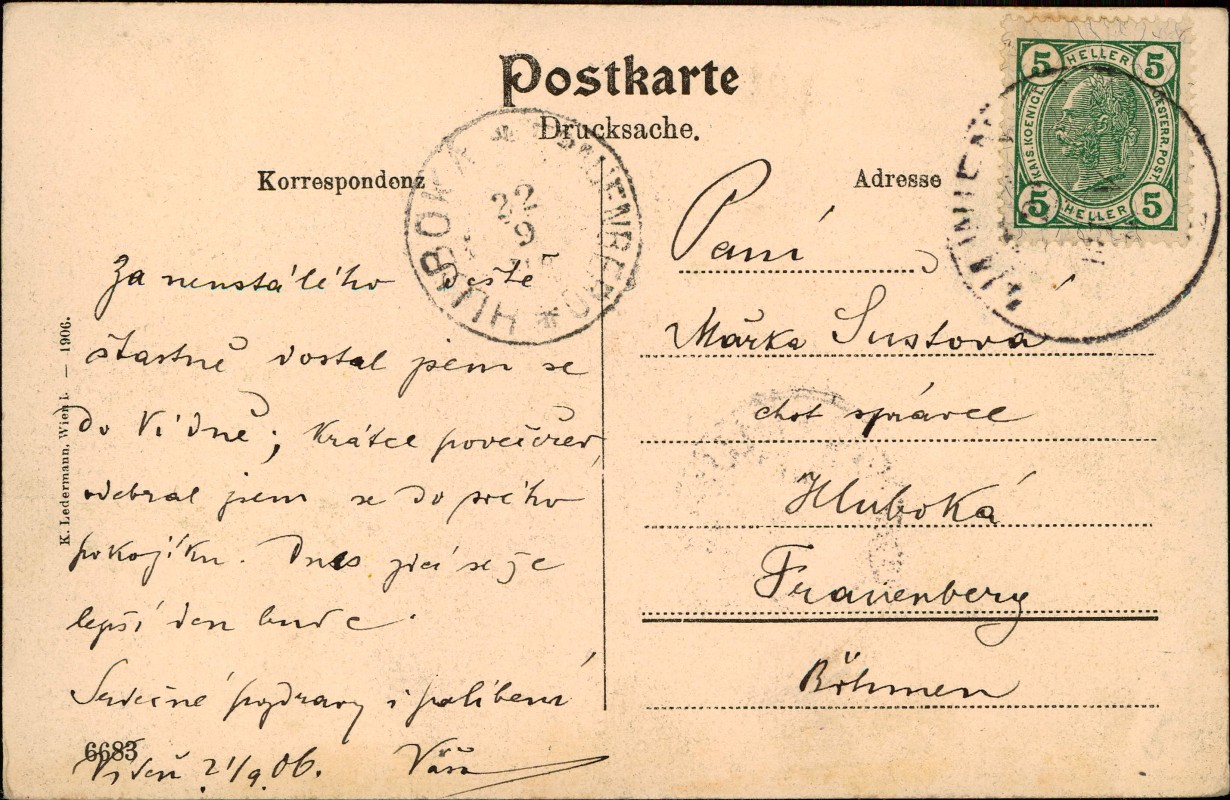 Postkarte
Drucksache.
Korrespondenz
Adresse
5 HELLER 5
KAIS. KOENIGL. OESTERR. POST.
5 HELLER 5
HLUBOKA * FRAUENBERG *
22
9
WIEN
Za neustálého deště
šťastně dostal jsem se
do Vídně; krátce povečeřev,
odebral jsem se do svého
pokojíku. Dnes zdá se že
lepší den bude.
Srdečné pozdravy i políbení
Vídeň 21/9 06. Váša
6683
K. Ledermann, Wien I. — 1906.
Paní
Mářka Šustová
choť správce
Hluboká
Frauenberg
Böhmen